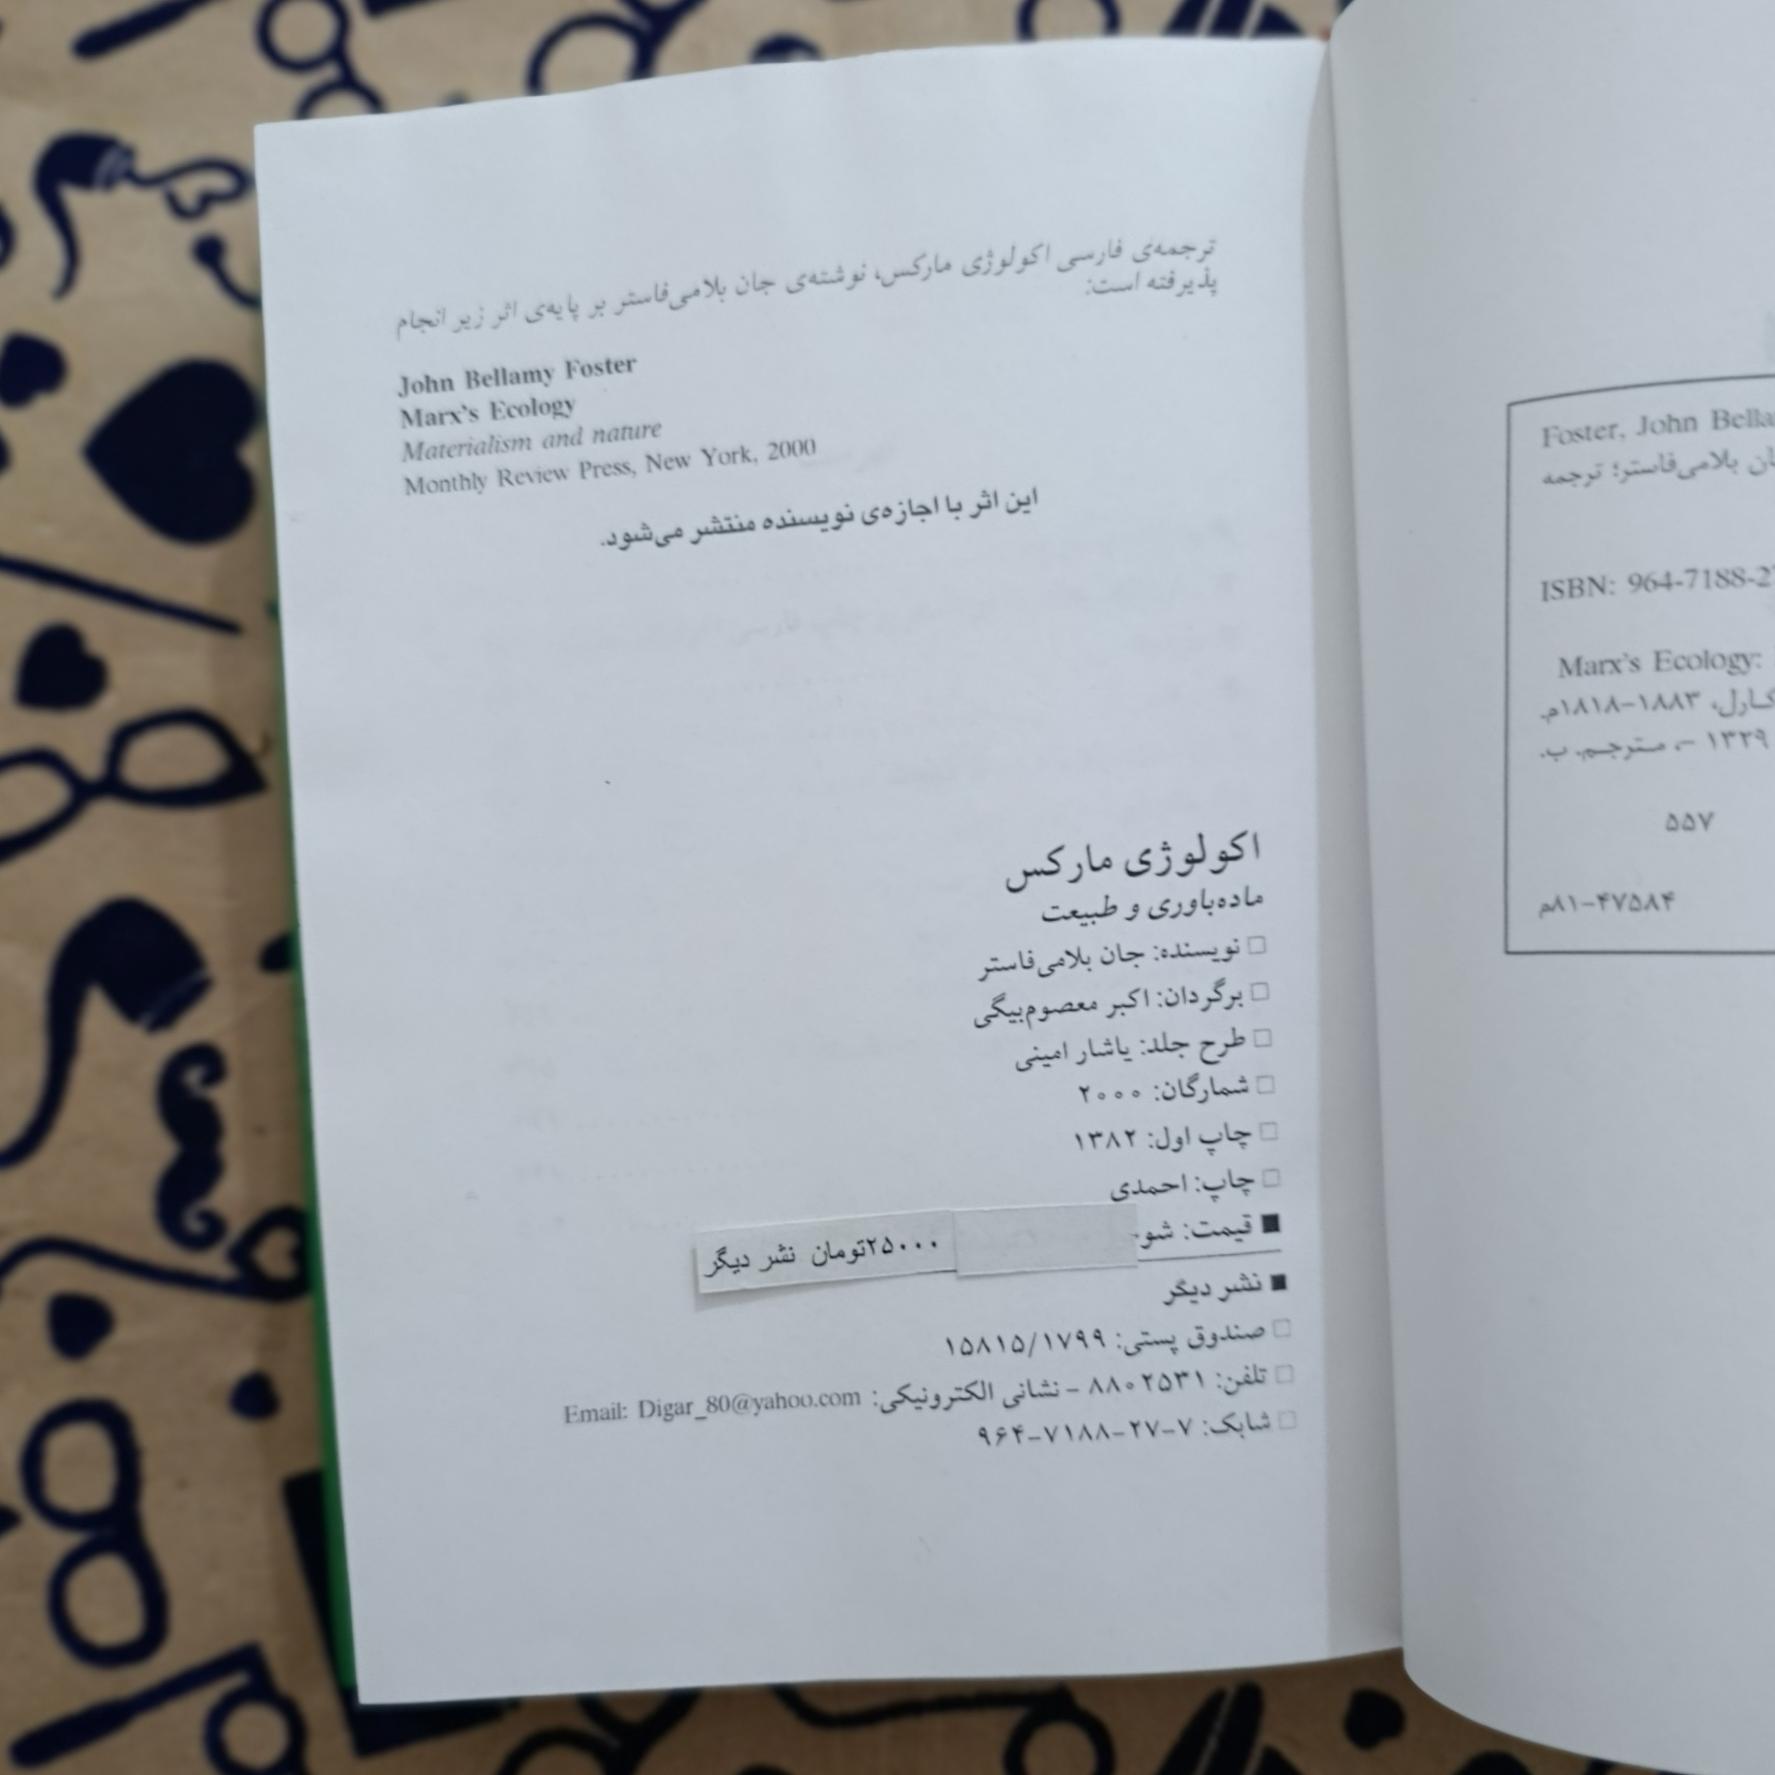 ترجمه‌ی فارسی اکولوژی مارکس، نوشته‌ی جان بلامی‌فاستر بر پایه‌ی اثر زیر انجام
پذیرفته است:
John Bellamy Foster
Marx's Ecology
Materialism and nature
Monthly Review Press, New York, 2000
این اثر با اجازه‌ی نویسنده منتشر می‌شود.
اکولوژی مارکس
ماده‌باوری و طبیعت
□ نویسنده: جان بلامی‌فاستر
□ برگردان: اکبر معصوم‌بیگی
□ طرح جلد: یاشار امینی
□ شمارگان: ۲۰۰۰
□ چاپ اول: ۱۳۸۲
□ چاپ: احمدی
■ قیمت:
۲۵۰۰۰تومان نشر دیگر
■ نشر دیگر
□ صندوق پستی: ۱۵۸۱۵/۱۷۹۹
□ تلفن: ۸۸۰۲۵۳۱ - نشانی الکترونیکی: Email: Digar_80@yahoo.com
□ شابک: ۹۶۴-۷۱۸۸-۲۷-۷
Foster, John
بلامی‌فاستر؛ ترجمه
ISBN: 964-7188-2
Marx's Ecology:
کارل، ۱۸۱۸-۱۸۸۳م.
۱۳۲۹ -، مترجم. ب.
۵۵۷
م۸۱-۴۷۵۸۴